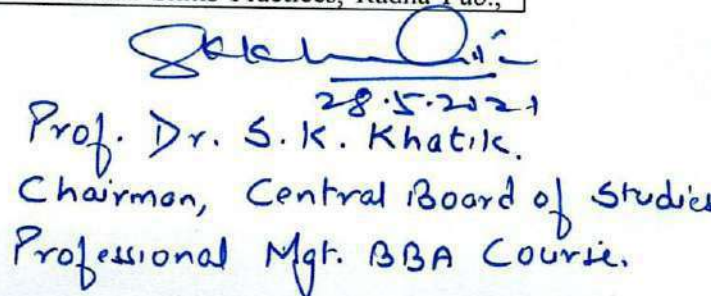 Practices, Radha Pub.,
28.5.2021
Prof. Dr. S. K. Khatik.
Chairman, Central Board of Studies
Professional Mgt. BBA Course.